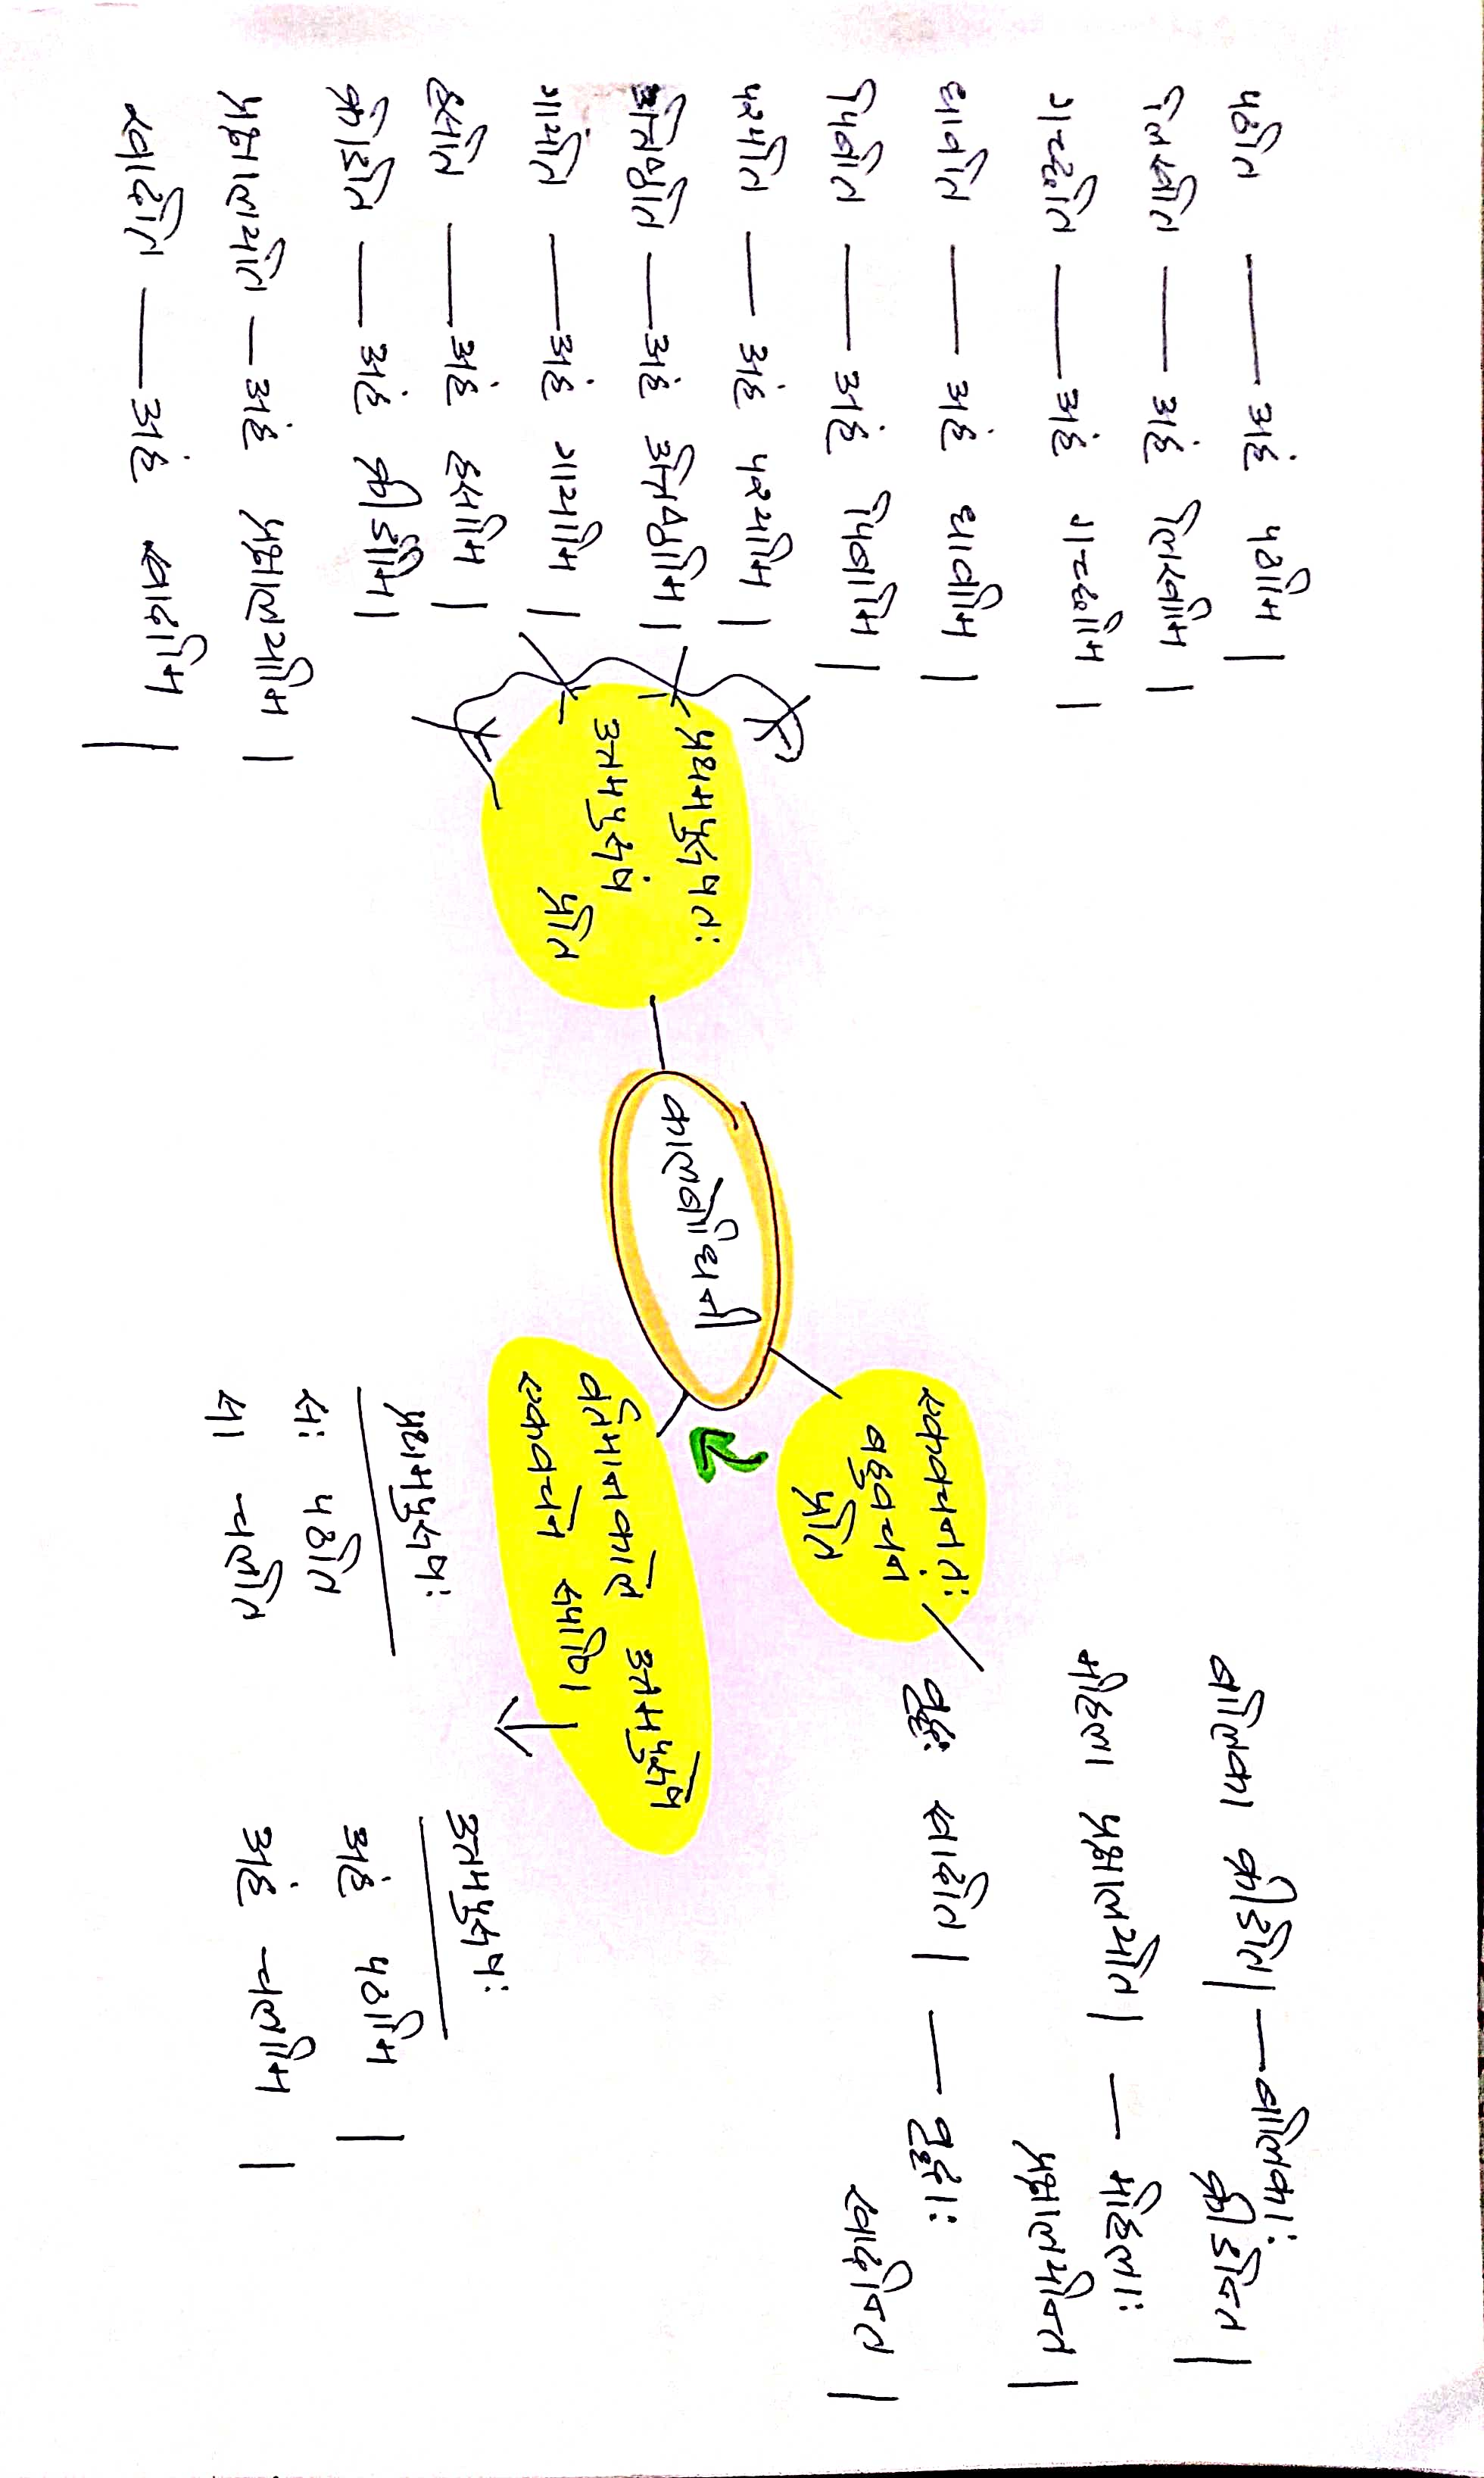 पठति — अहं पठामि।
लिखति — अहं लिखामि।
गच्छति — अहं गच्छामि।
धावति — अहं धावामि।
पिबति — अहं पिबामि।
पश्यति — अहं पश्यामि।
तिष्ठति — अहं तिष्ठामि।
गायति — अहं गायामि।
हसति — अहं हसामि।
क्रीडति — अहं क्रीडामि।
प्रक्षालयति — अहं प्रक्षालयामि।
खादति — अहं खादामि।
प्रथमपुरुषतः
उत्तमपुरुषं
प्रति
कालबोधिनी
एकवचनतः
बहुवचनं
प्रति
बालिका क्रीडति। — बालिकाः
क्रीडन्ति।
महिला प्रक्षालयति। — महिलाः
प्रक्षालयन्ति।
वृद्धः खादति। — वृद्धाः
खादन्ति।
वर्तमानकाले उत्तमपुरुषे
एकवचने रूपाणि।
प्रथमपुरुषः
सः पठति
सा चलति
उत्तमपुरुषः
अहं पठामि।
अहं चलामि।